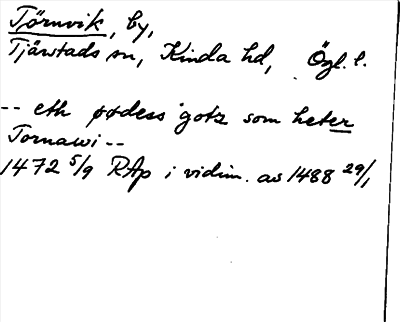 Törnvik, by,
Tjärstads sn, Kinda hd, Ögl. l.
-- eth ødess gotz som heter
Tornawi --
1472 5/9 RAp i vidim. av 1488 29/1